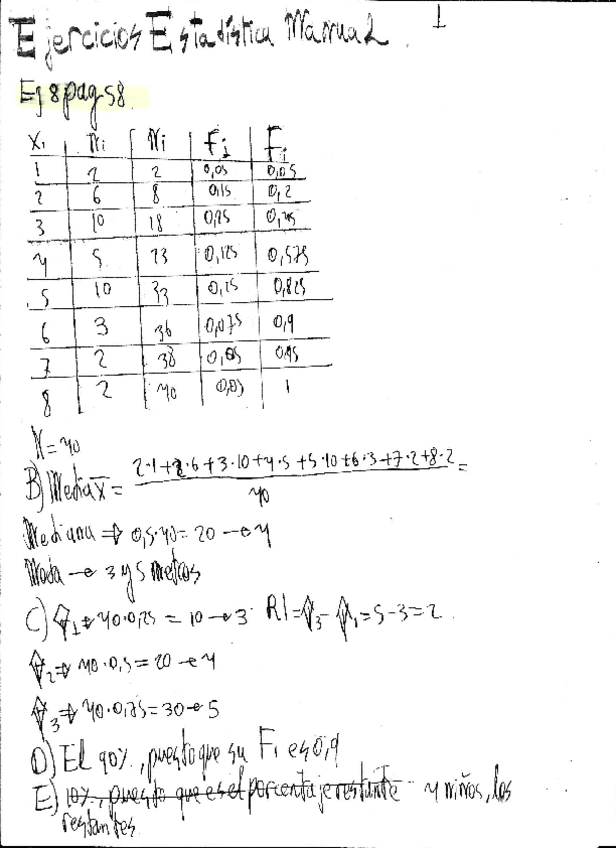 Ejercicios Estadística Manual 1
Ej 8 pag 58
Xi ni Ni Fi Fi
1 2 2 0,05 0,05
2 6 8 0,15 0,2
3 10 18 0,25 0,45
4 5 23 0,125 0,575
5 10 33 0,25 0,825
6 3 36 0,075 0,9
7 2 38 0,05 0,95
8 2 40 0,05 1
N=40
B) Media x̄ = 2·1+2·6+3·10+4·5+5·10+6·3+7·2+8·2 =
40
Mediana ⇒ 0,5·40=20 → 4
Moda → 3 y 5 metros
C) Q1 ⇒ 40·0,25 = 10 → 3 RI=Q3-Q1=5-3=2
Q2 ⇒ 40·0,5=20 → 4
Q3 ⇒ 40·0,75=30 → 5
D) El 90%, puesto que su Fi es 0,9
E) 10%, puesto que es el porcentaje restante 4 niños, los
restantes